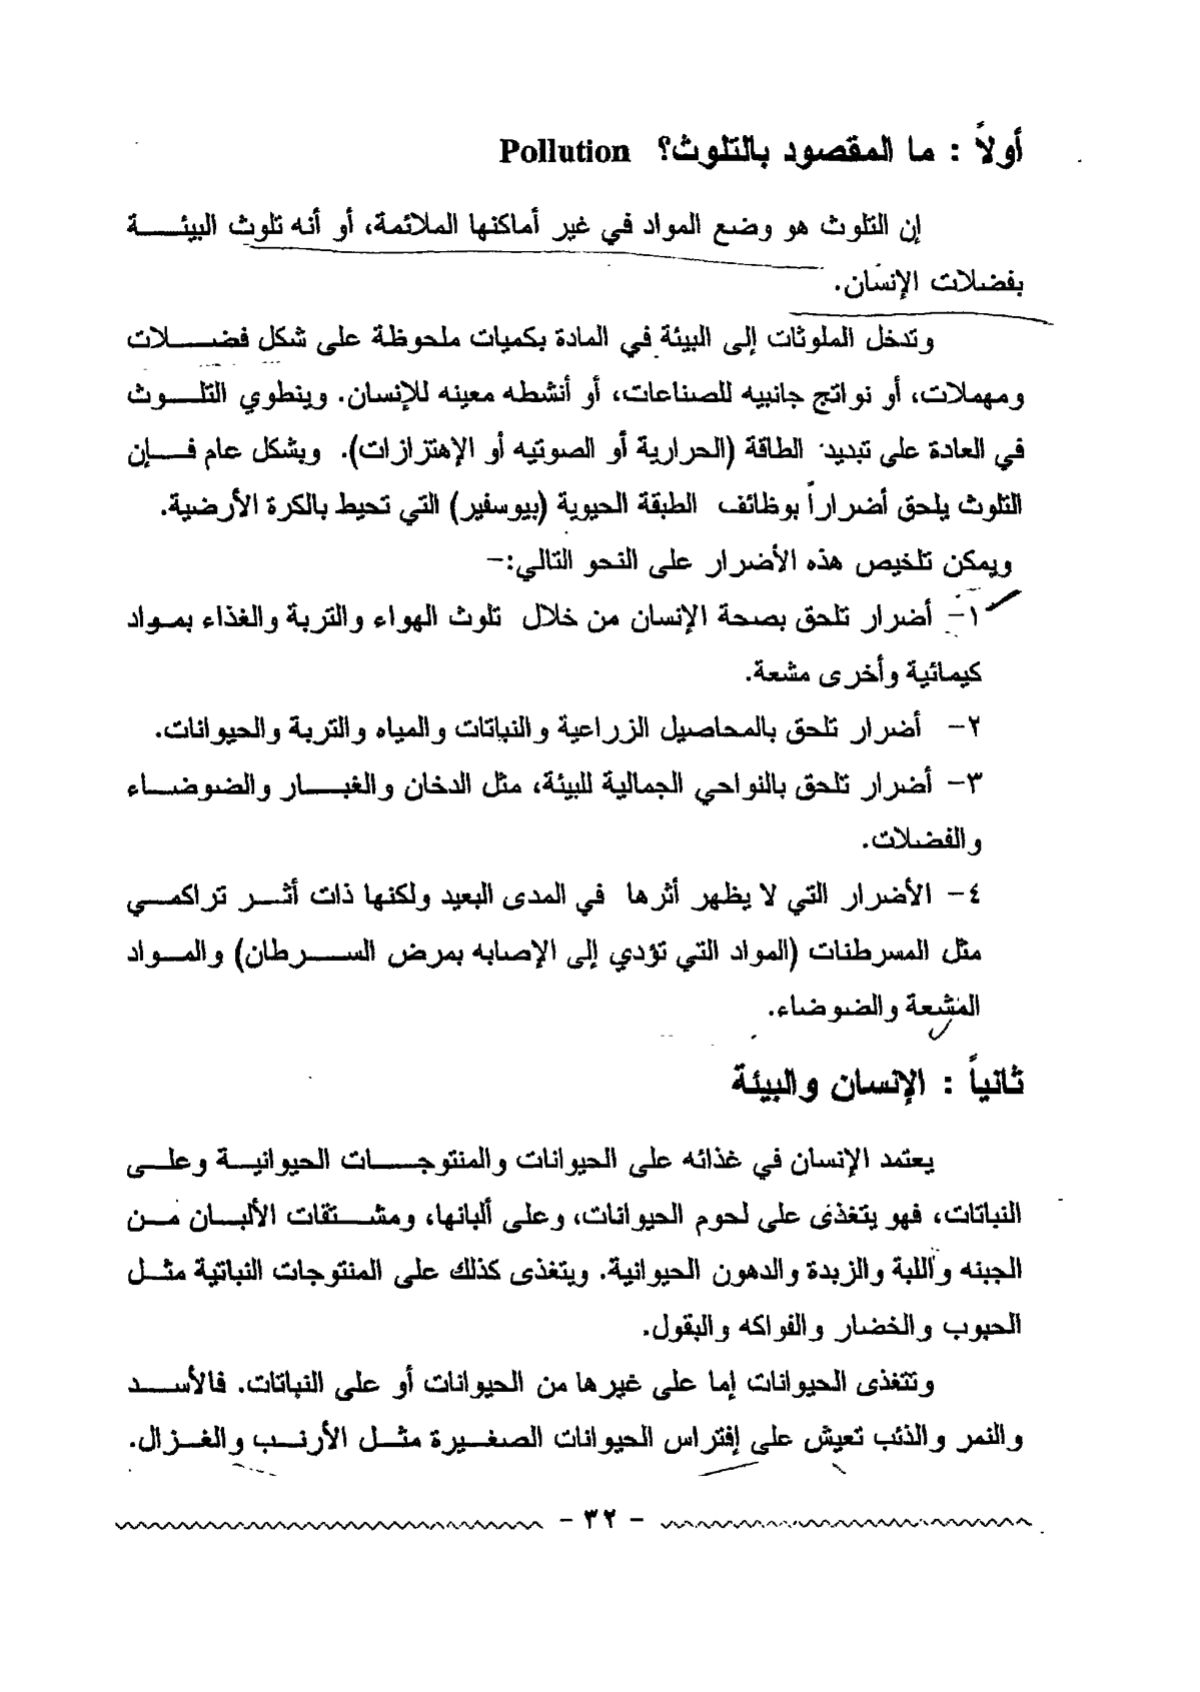 أولاً : ما المقصود بالتلوث؟ Pollution
إن التلوث هو وضع المواد في غير أماكنها الملائمة، أو أنه تلوث البيئة
بفضلات الإنسان.
وتدخل الملوثات إلى البيئة في المادة بكميات ملحوظة على شكل فضلات
ومهملات، أو نواتج جانبيه للصناعات، أو أنشطه معينه للإنسان. وينطوي التلوث
في العادة على تبديد الطاقة (الحرارية أو الصوتيه أو الإهتزازات). وبشكل عام فإن
التلوث يلحق أضراراً بوظائف الطبقة الحيوية (بيوسفير) التي تحيط بالكرة الأرضية.
ويمكن تلخيص هذه الأضرار على النحو التالي:-
١- أضرار تلحق بصحة الإنسان من خلال تلوث الهواء والتربة والغذاء بمواد
كيمائية وأخرى مشعة.
٢- أضرار تلحق بالمحاصيل الزراعية والنباتات والمياه والتربة والحيوانات.
٣- أضرار تلحق بالنواحي الجمالية للبيئة، مثل الدخان والغبار والضوضاء
والفضلات.
٤- الأضرار التي لا يظهر أثرها في المدى البعيد ولكنها ذات أثر تراكمي
مثل المسرطنات (المواد التي تؤدي إلى الإصابه بمرض السرطان) والمواد
المشعة والضوضاء.
ثانياً : الإنسان والبيئة
يعتمد الإنسان في غذائه على الحيوانات والمنتوجات الحيوانية وعلى
النباتات، فهو يتغذى على لحوم الحيوانات، وعلى ألبانها، ومشتقات الألبان من
الجبنه واللبة والزبدة والدهون الحيوانية. ويتغذى كذلك على المنتوجات النباتية مثل
الحبوب والخضار والفواكه والبقول.
وتتغذى الحيوانات إما على غيرها من الحيوانات أو على النباتات. فالأسد
والنمر والذئب تعيش على إفتراس الحيوانات الصغيرة مثل الأرنب والغزال.
- ٣٢ -